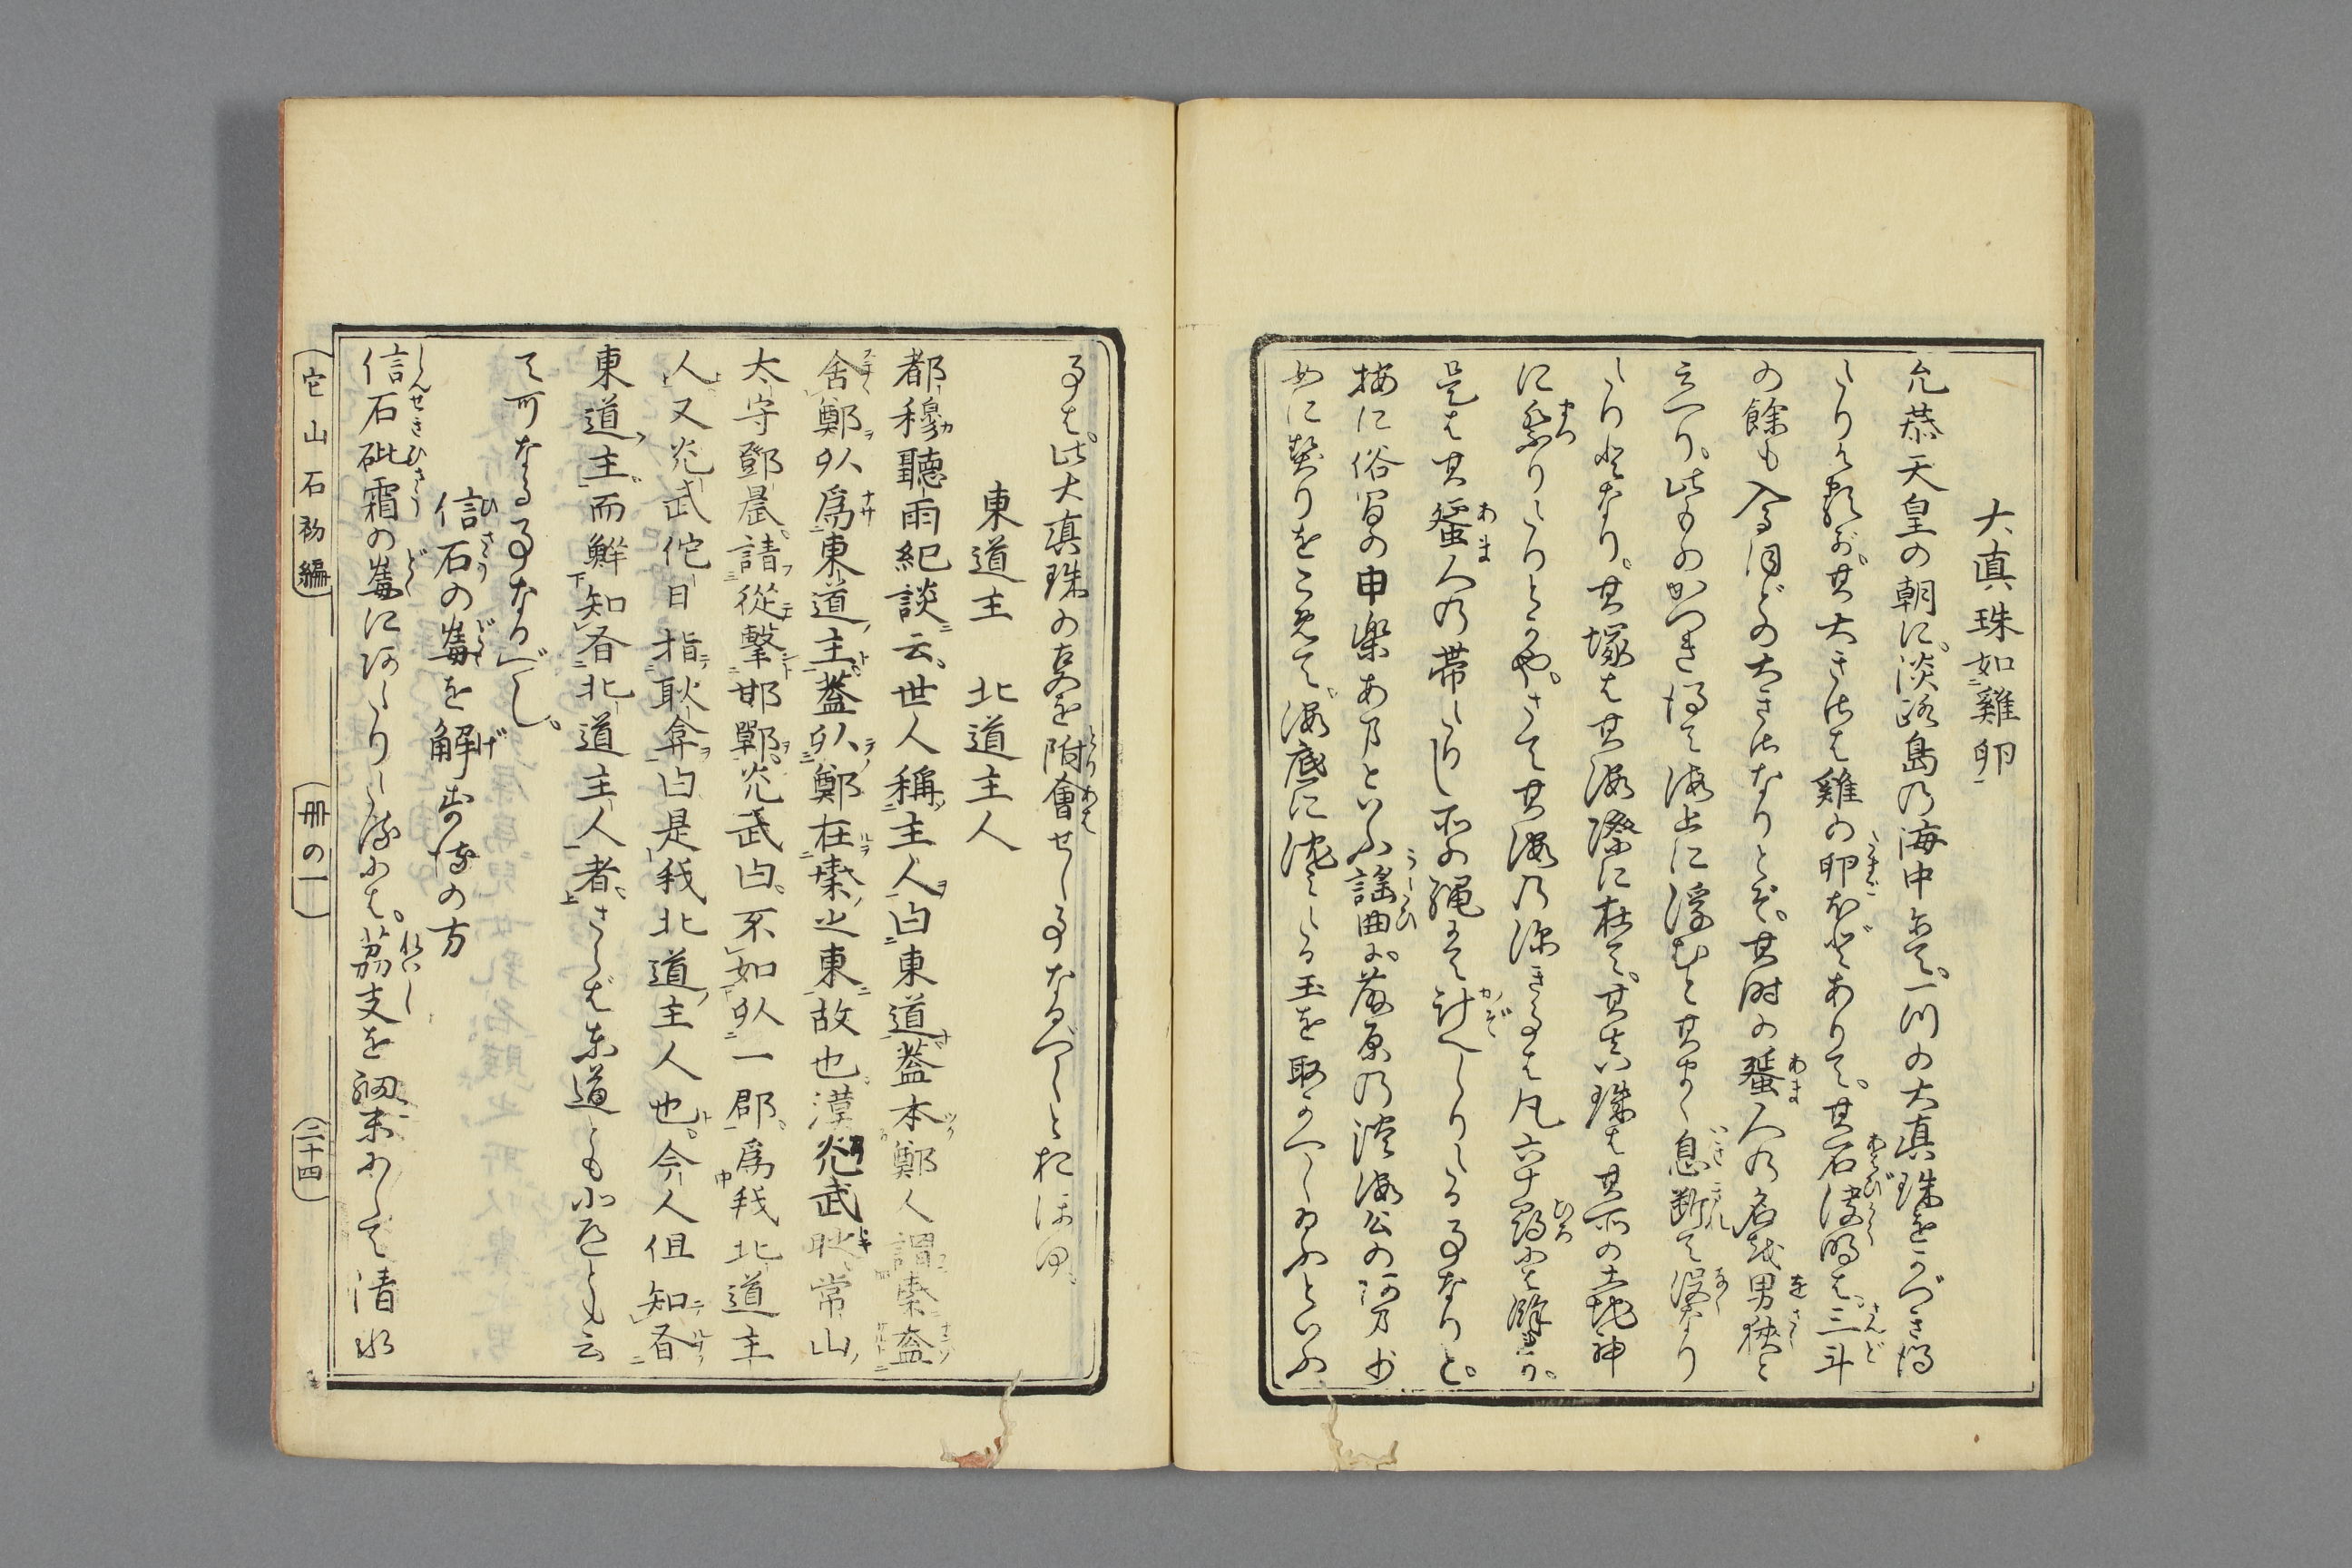 大真珠如雞卵
允恭天皇の朝に。淡路島乃海中にて。一川の大真珠をかづき得
たりし其大きさは雞の卵ほどありて。其石決明は三斗
の餘も入るほどの大きさなりとぞ。其時の蜑人の名を男狭と
云へり。此ものかつき得て海上に浮むと其まゝ息断て没たり
たりしなり。其塚は其海際に在て。其真珠は其所の土地神
に祭りたりとかや。さて其海乃深き事は凡六十尋に餘るが。
是は其蜑人乃帯たりし所の縄にて計へしりたる事なりと。
按に俗間の申楽あまといふ謡曲は。藤原乃淡海公の海乃少
女に契りをこめて。海底に沈たる玉を取かへしゐふといふ
事は。此大真珠の事を附會せし事なるべしとおほゆ。
東道主　北道主人
都穆聽雨紀談云。世人稱主人曰東道蓋本鄭人謂秦盍
舍鄭以爲東道主蓋以鄭在秦之東故也漢光武時常山
太守鄧晨。請從撃邯鄲。光武曰。不如以一郡。爲我北道主
人又光武他日指耿弇曰是我北道主人也。今人但知有
東道主而鮮知有北道主人者。さらば東道とも北道とも云
て可なる事なるべし。
信石の毒を解る方
信石砒霜の毒に河たりたるには。茘支を細末にして清水
它山石初編
冊の一
二十四